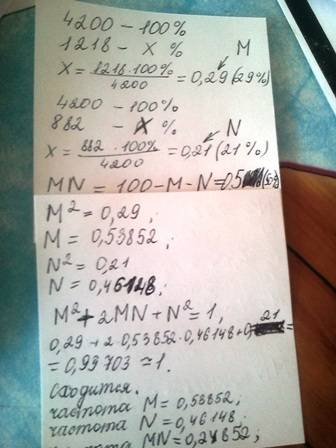 4200 - 100%
1218 - x %
M
x = 1218·100% / 4200 = 0,29 (29%)
4200 - 100%
882 - x %
N
x = 882 · 100% / 4200 = 0,21 (21%)
MN = 100 - M - N = 0,5
M² = 0,29 ;
M = 0,53852 ;
N² = 0,21
N = 0,46148 ;
M² + 2MN + N² = 1,
0,29 + 2·0,53852·0,46148 + 0,21 =
= 0,99703 ≃ 1.
Сходится.
частота M = 0,53852 ;
частота N = 0,46148 ;
MN = 0,24852 ;